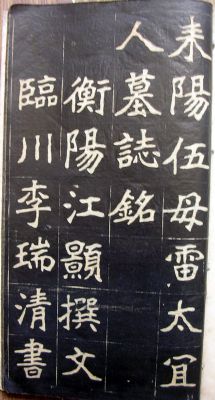 耒陽伍母雷太宜
人墓誌銘
衡陽江顥撰文
臨川李瑞清書